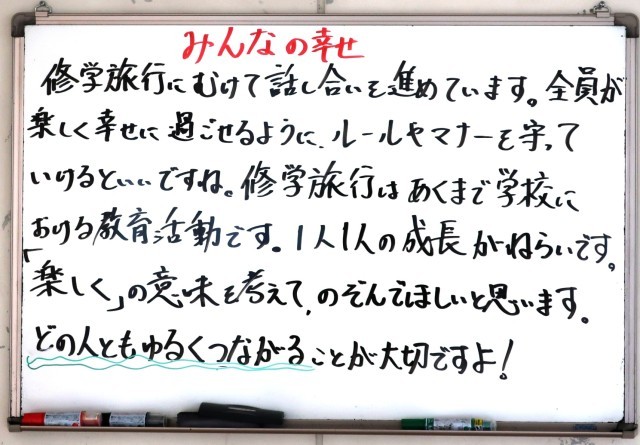 みんなの幸せ
修学旅行にむけて話し合いを進めています。全員が
楽しく幸せに過ごせるように、ルールやマナーを守って
いけるといいですね。修学旅行はあくまで学校に
おける教育活動です。1人1人の成長がねらいです。
「楽しく」の意味を考えて、のぞんでほしいと思います。
どの人ともゆるくつながることが大切ですよ!